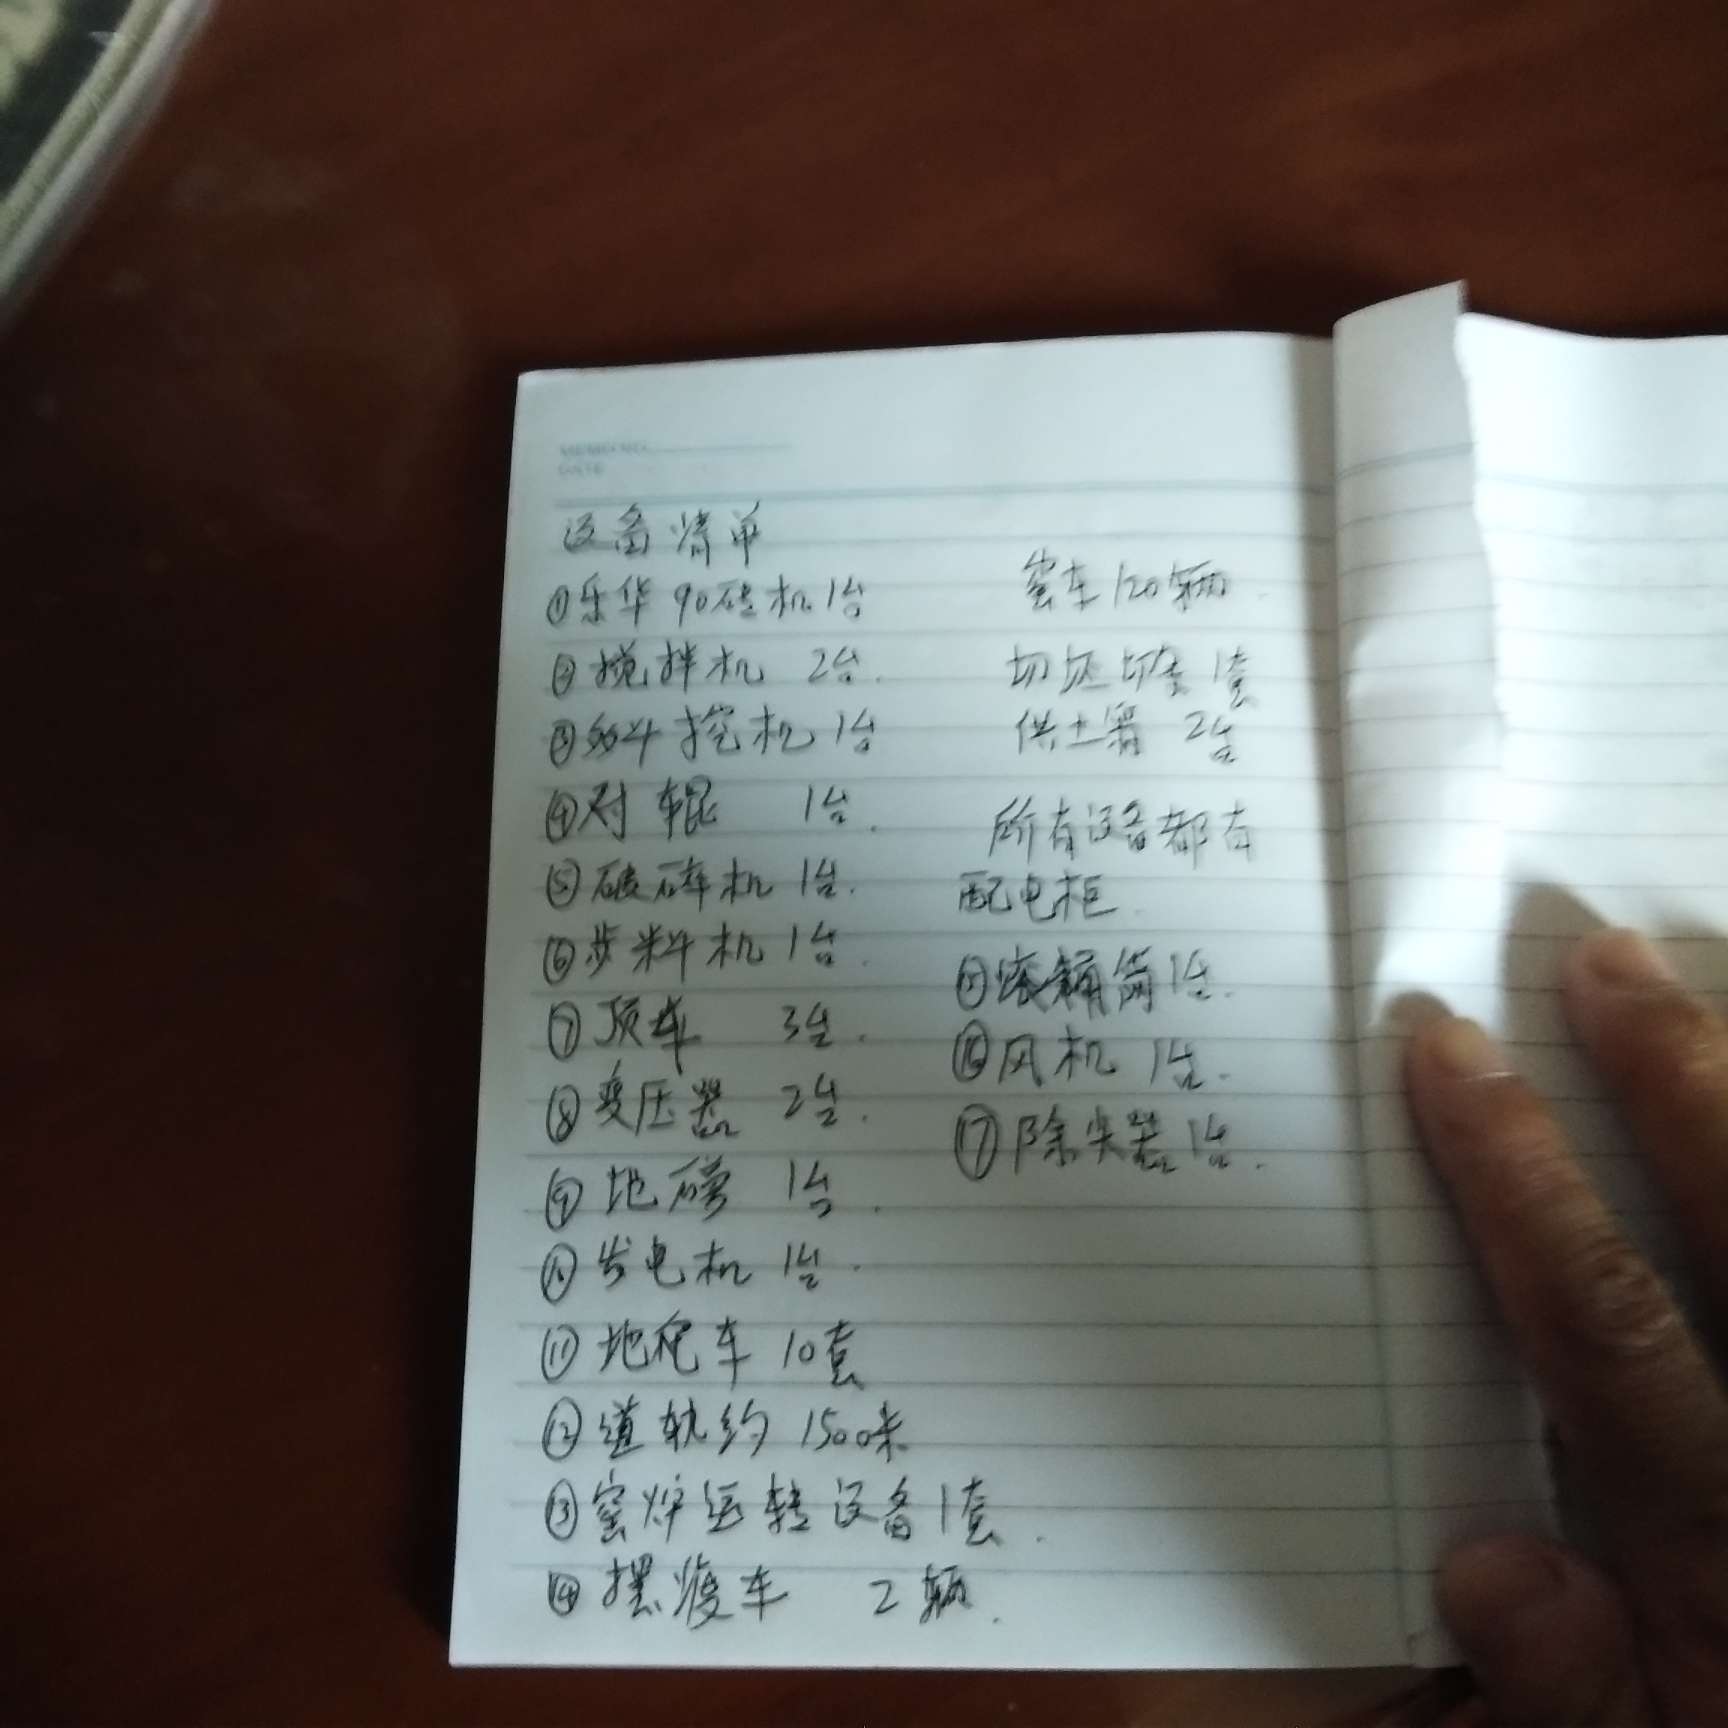 MEMO NO.
DATE
设备清单
①乐华90砖机1台
②搅拌机 2台.
③多斗挖机1台
④对辊 1台.
⑤破碎机1台.
⑥步料机1台.
⑦顶车 3台.
⑧变压器 2台.
⑨地磅 1台.
⑩发电机1台.
⑪地爬车10套
⑫道轨约1500米
⑬窑炉运转设备1套.
⑭摆渡车 2辆.
窑车120辆.
切坯切条1套
供土箱 2台
所有设备都有
配电柜.
⑮滚桶筛1台.
⑯风机1台.
⑰除尘器1台.